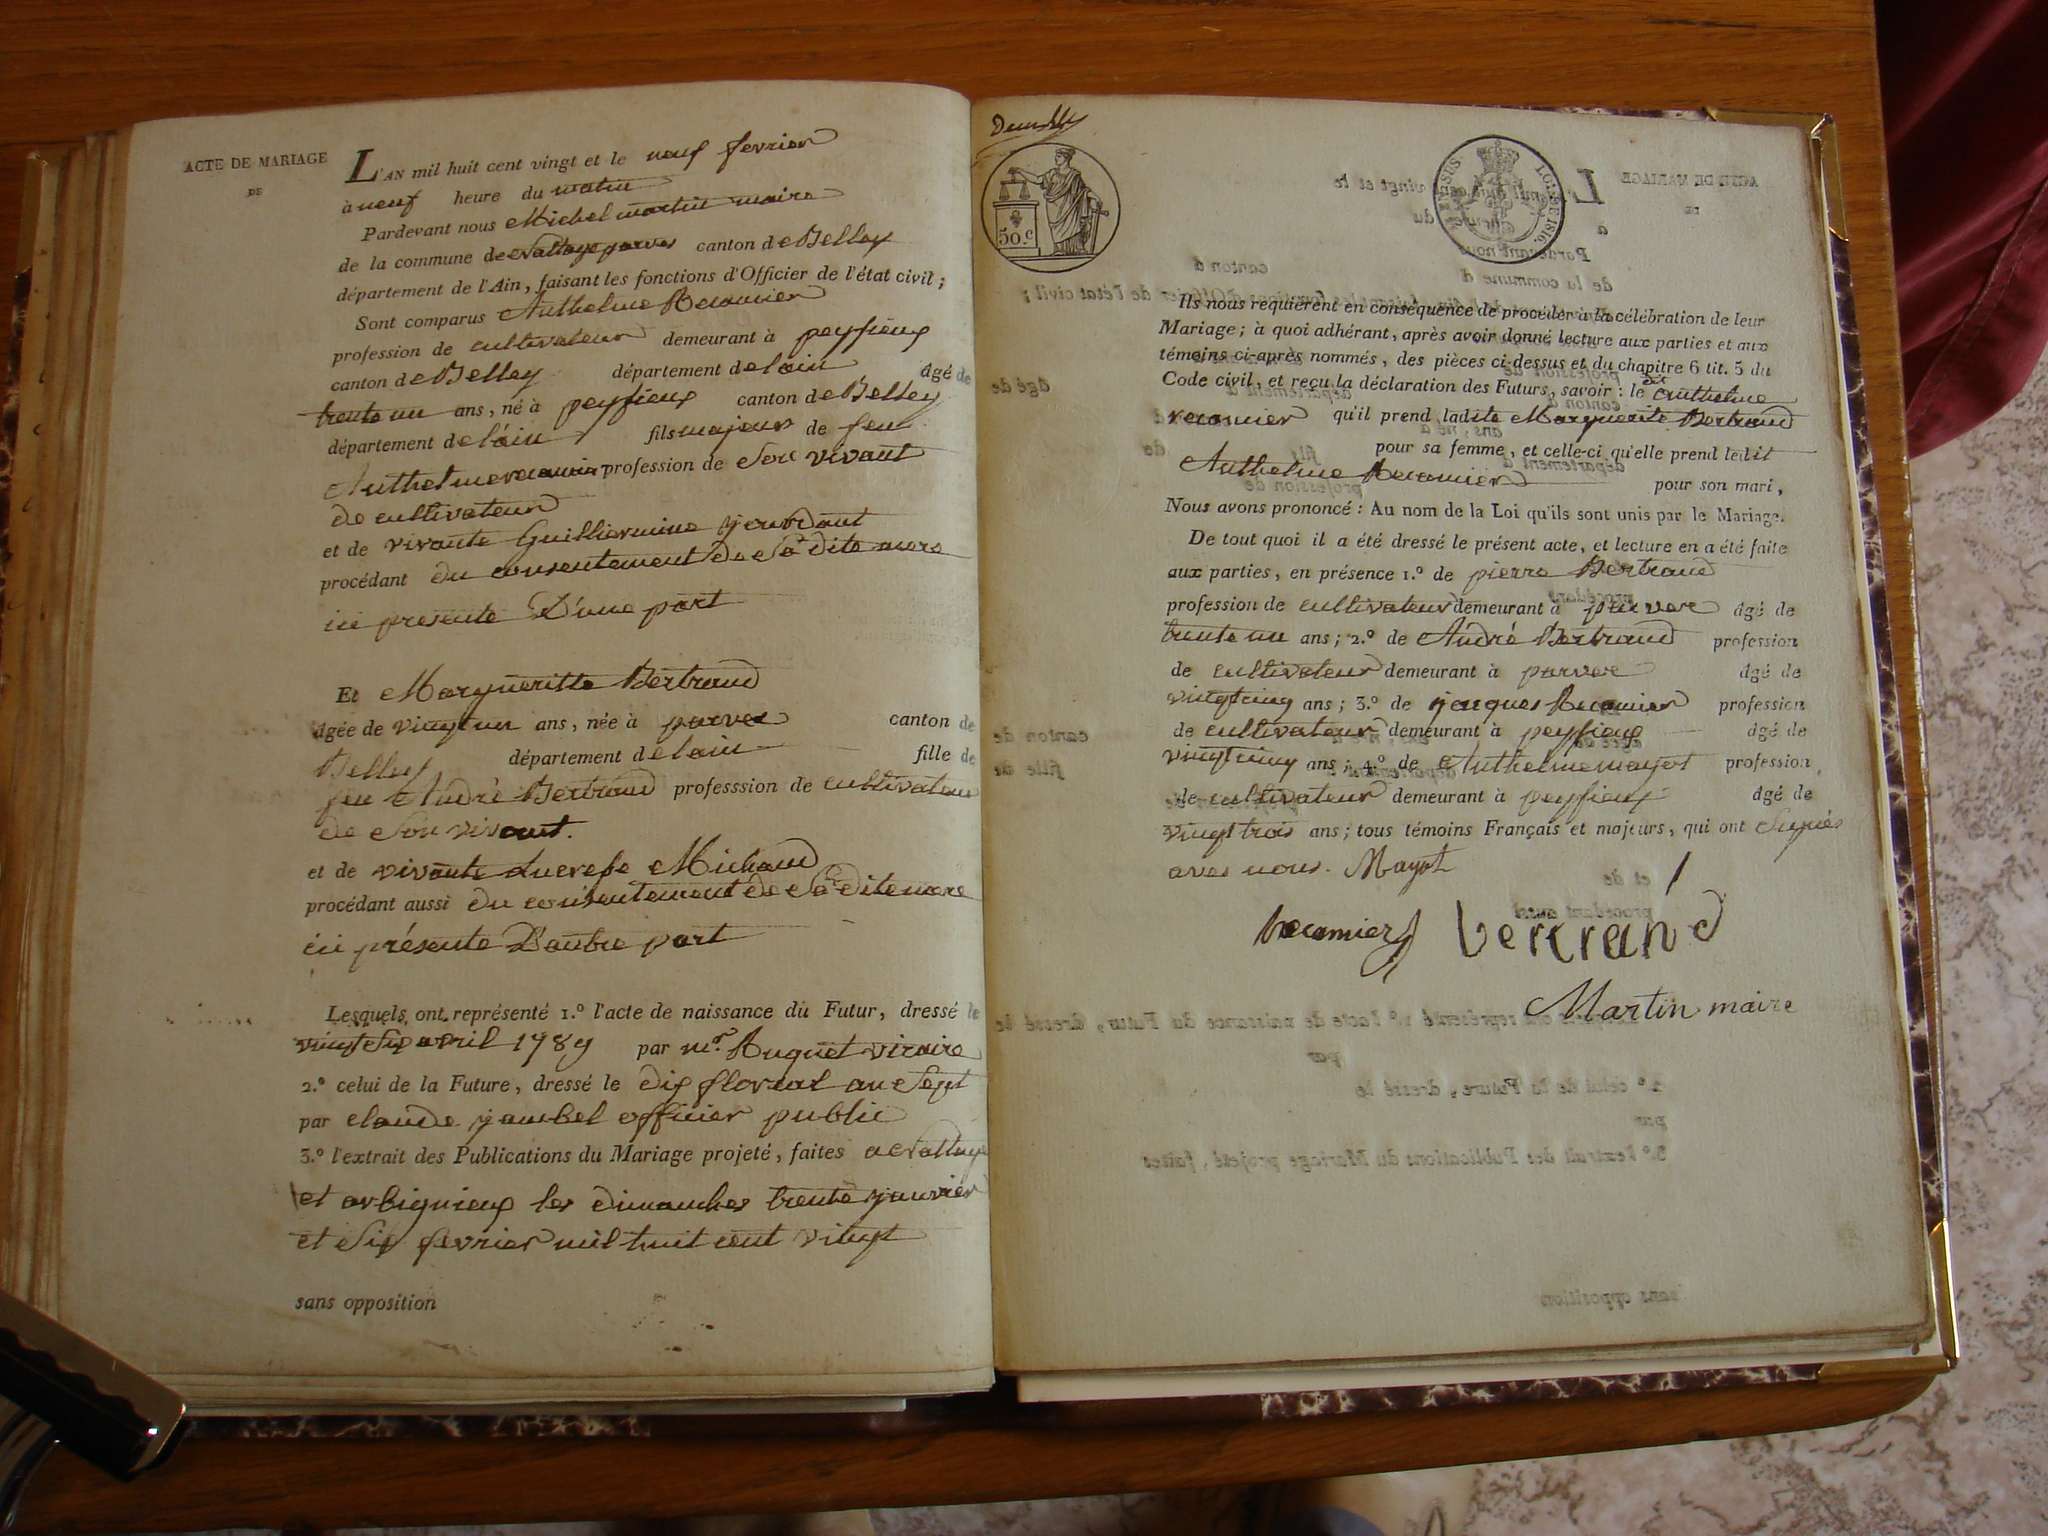 ACTE DE MARIAGE
DE
L'AN mil huit cent vingt et le neuf fevrier
à neuf heure du matin
Pardevant nous Michel martin maire
de la commune de canton de Belley
département de l'Ain, faisant les fonctions d'Officier de l'état civil;
Sont comparus Anthelme Recamier
profession de cultivateur demeurant à peysieux
canton de Belley département de lain âgé de
trente un ans, né à peysieux canton de Belley
département de lain fils majeur de feu
Anthelme recamier profession de Son vivant
de cultivateur
et de vivante Guilliermine jourdant
procédant du consentement de Sa dite mere
ici presente D'une part
Et Margueritte Bertrand
âgée de vingt un ans, née à parves canton de
Belley département de lain fille de
feu André Bertrand professsion de cultivateur
de Son vivant.
et de vivante Lucresse Michaud
procédant aussi du consentement de Sa dite mere
ici présente D'autre part
Lesquels ont représenté 1.º l'acte de naissance du Futur, dressé le
vingt Six avril 1789 par mr. Huguet vicaire
2.º celui de la Future, dressé le dix floreal an Sept
par claude jambel officier public
3.º l'extrait des Publications du Mariage projeté, faites a
et arbignieux les dimanches trente janvier
et Six fevrier mil huit cent vingt
sans opposition
50.c
Ils nous requièrent en conséquence de procéder à la célébration de leur
Mariage; à quoi adhérant, après avoir donné lecture aux parties et aux
témoins ci-après nommés, des pièces ci-dessus et du chapitre 6 tit. 5 du
Code civil, et reçu la déclaration des Futurs, savoir: le dit Anthelme
recamier qu'il prend ladite Marguerite Bertrand
pour sa femme, et celle-ci qu'elle prend ledit
Anthelme Recamier pour son mari,
Nous avons prononcé: Au nom de la Loi qu'ils sont unis par le Mariage.
De tout quoi il a été dressé le présent acte, et lecture en a été faite
aux parties, en présence 1.º de pierre Bertrand
profession de cultivateur demeurant à parves âgé de
trente un ans; 2.º de André Bertrand profession
de cultivateur demeurant à parves âgé de
vingt cinq ans; 3.º de jacques Recamier profession
de cultivateur demeurant à peysieux âgé de
vingt cinq ans; 4.º de Anthelme mayot profession
de cultivateur demeurant à peysieux âgé de
vingt trois ans; tous témoins Français et majeurs, qui ont Signés
avec nous. Mayot
Recamier Bertrand
Martin maire